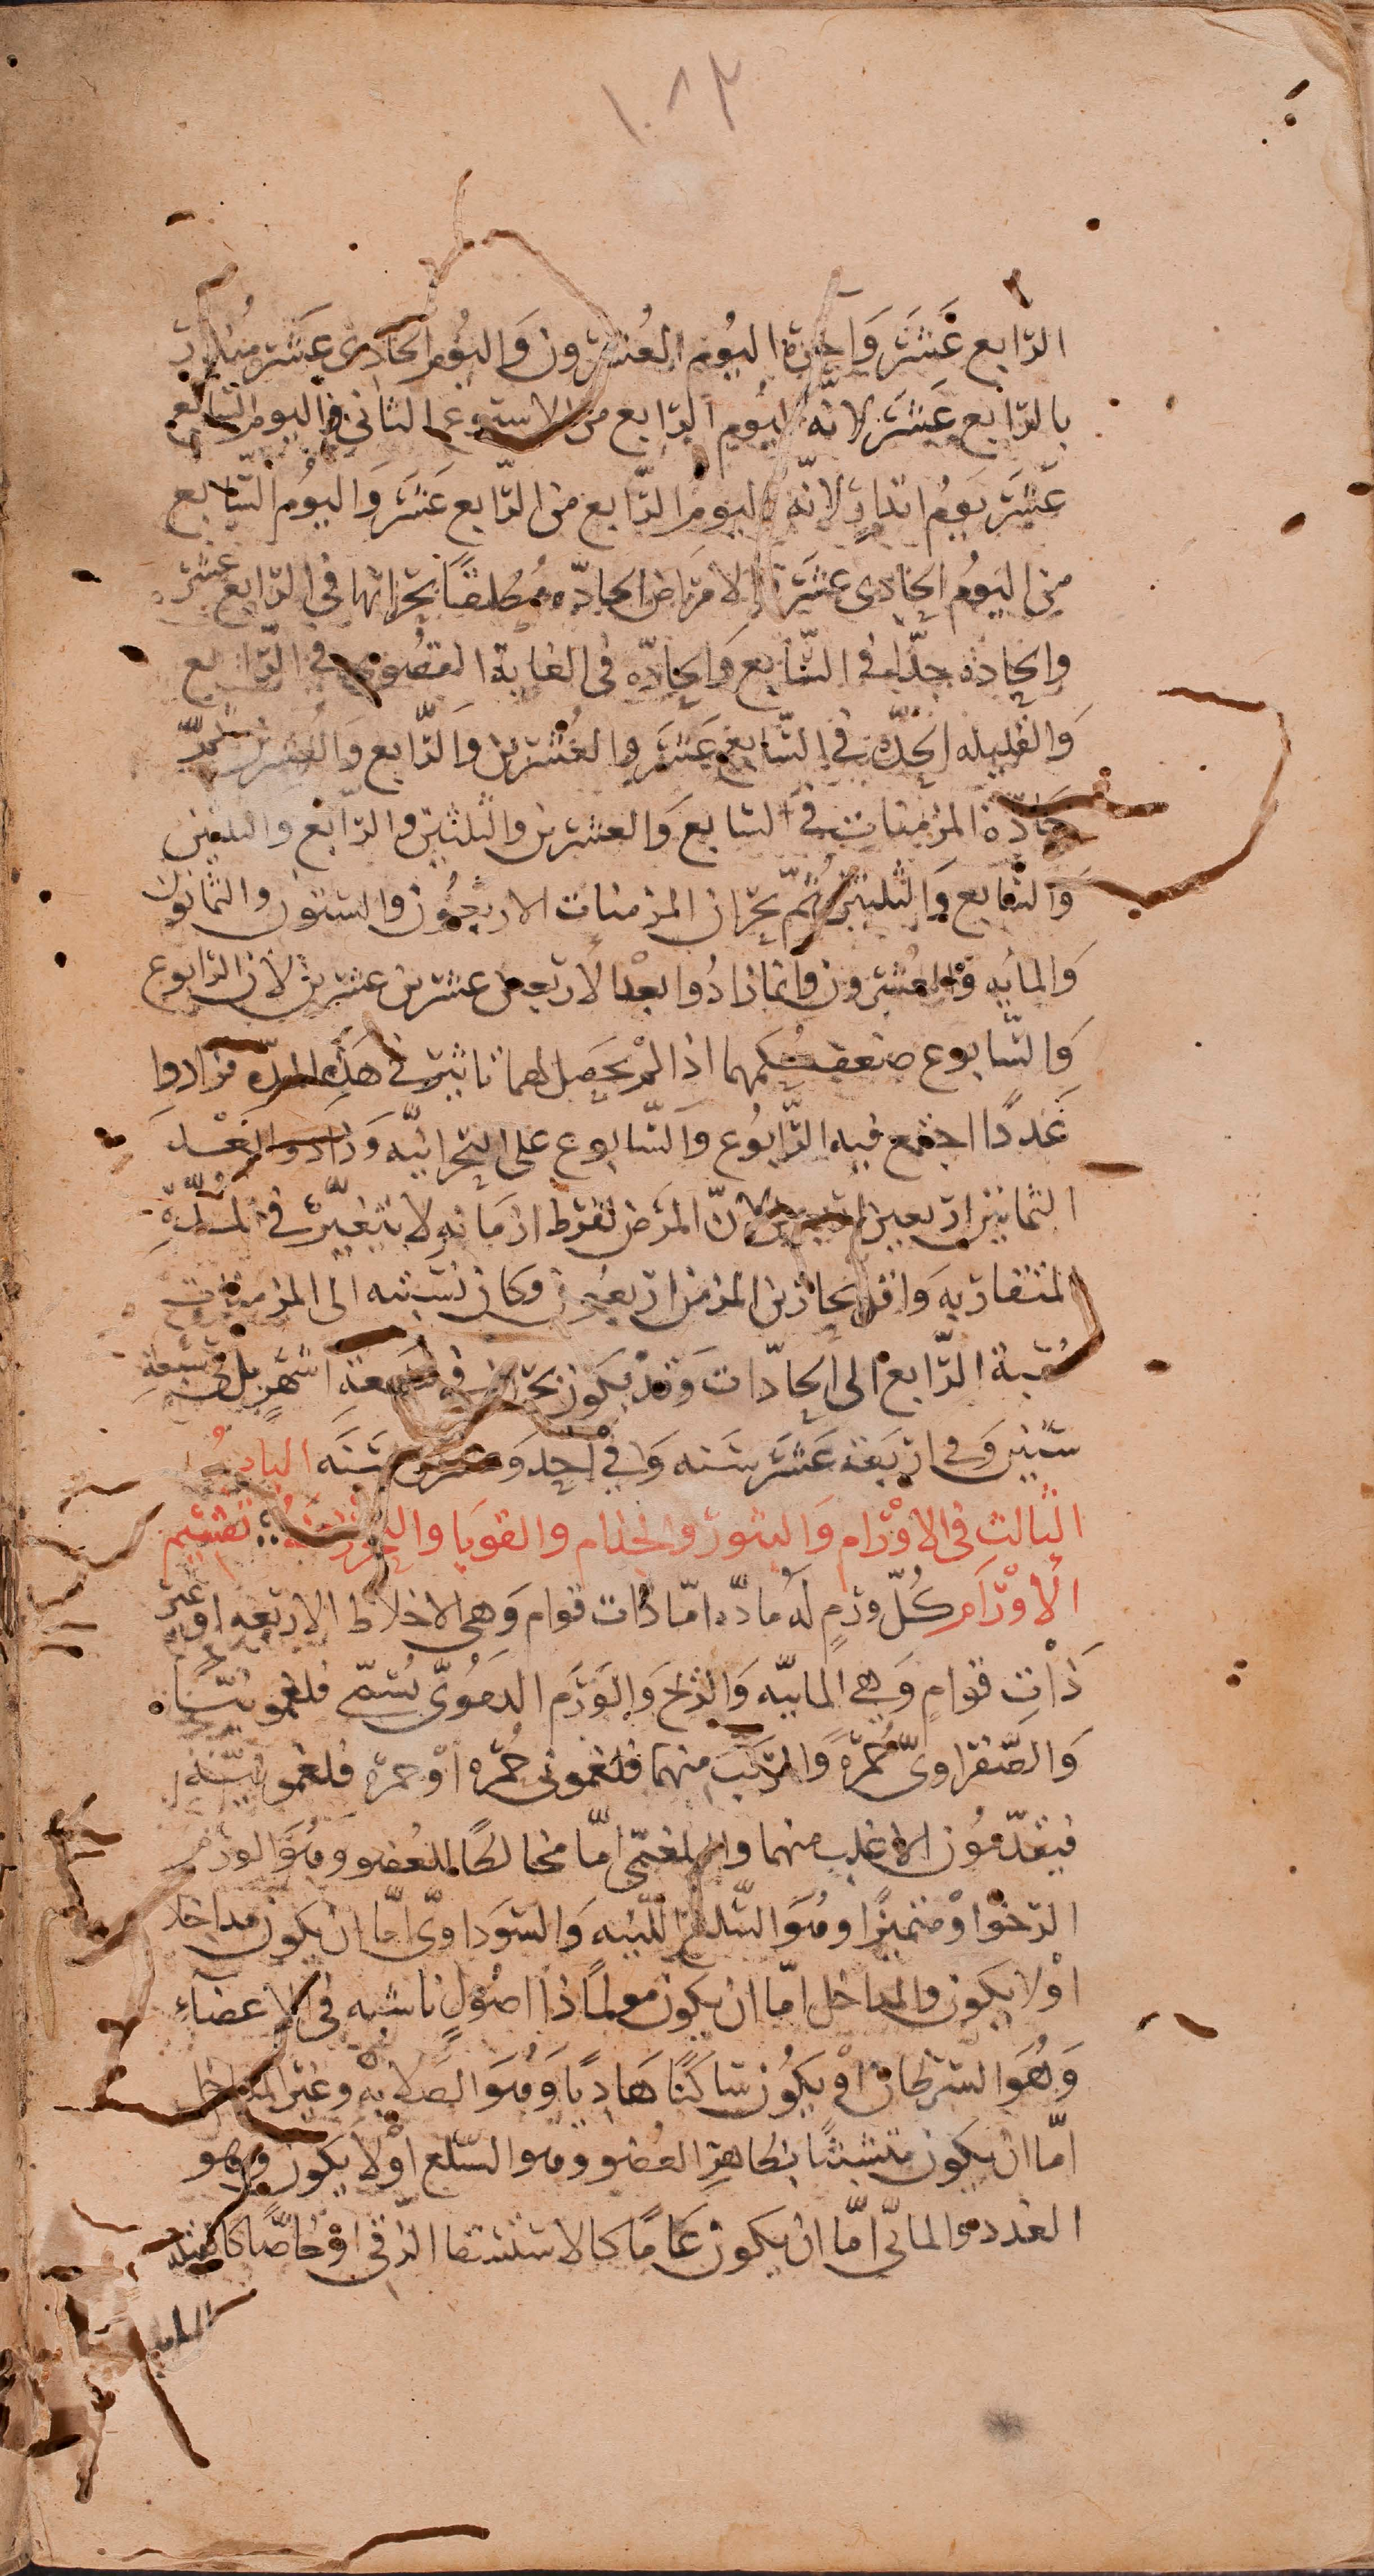 ١٠٨٣
الرّابع عَشَرَ وَآخرة اليُوم العُشرون وَاليُوم الحادى عَشَر مُنذر
بالرّابع عَشَرَ لانّه اليُوم الرّابع من الاسبوع الثاني واليوم السّابع
عَشَر يَومُ انذارٍ لانّه اليوم الرّابع من الرّابع عَشَرَ وَاليُوم السّابع
من اليَومُ الحادى عشَر الامرَاض الحادّه مُطلقًا بحرانها فى الرّابع عشر
والحادّه جدّا فى السّابع وَالحادّه فى الغاية القصُوى فى الرّابع
وَالقليله الحدّه فى السّابع عَشَر والعُشرين وَالرّابع وَالعُشرين
حَادّة المزمنات فى السّابع وَالعشرين والثلثين والرّابع والثلثين
وَالسّابع وَالثلثين ثمّ بحران المزمنات الاربعُون والستون والثمانون
وَالمائه وَالعُشرون وانما زادُوا بعد الاربعين عشرين عشرين لان الرّابوع
وَالسّابوع ضعف حكمهما اذا لمْ يحَصل لهما تاثير فى هَذِه المدّه فزادوا
عَددًا اجتمع فيه الرّابُوع وَالسّابوع على البحرانيّه وَزادَوا بَعْد
الثمانين اربعين اربعين لانّ المرَض لفرط ازمانهِ لا يتغيّر فى المُدّةِ
المتقاربه وَاقل بحارين المزمن اربعُون وكان نسَبته الى المزمنات
نسبة الرّابع الى الحادّات وَقدْ يكوُن بحران فى سَبعة اشهُرٍ بل فى سَبعةِ
سنين وَفى اربَعة عَشَر سَنه وَفى احد وَعشرين سَنَه البابُ
الثالث فى الاوْرَام وَالبثور والجذام والقوبَا والتحرّز عنهُ ؞ تقسيم
الاوْرَام كُلّ ورَمٍ لهُ مادّه امّا ذات قوام وَهى الاخلاط الاربعه او غير
ذَاتِ قوامٍ وَهى المائيّه وَالريح وَالوَرَم الدمَوُىّ يُسمّى فلغمونيّا
وَالصّفراوىّ حُمرة وَالمركبّ منهما فلغمونى حُمره اوْ حمرة فلغمونيّه
فيقدّمُون الاغلب منهما والبلغمىّ امّا مخالطًا للعُضو وَهُوَ الورَم
الرّخو اوْ متميزًا وهُوَ السّلع اللّينه وَالسَودَاوىّ امّا ان يكون مداخلا
اوْلا يكون والمداخل امّا ان يكون مولمًا ذا اصُولٍ ناشبه فى الاعضآء
وَهُوَ السّرطان اوْ يكُون سَاكنًا هَادِيًا وَهُوَ الصَلابهْ وَغير المداخل
امّا ان يكون متشبثًا بظاهِر العُضو وهو السّلع اوْ لا يكون وهو
الغدد والمائىّ امّا ان يكون عَامًا كالاستسقا الزقى اوْ خاصًّا كالقيله